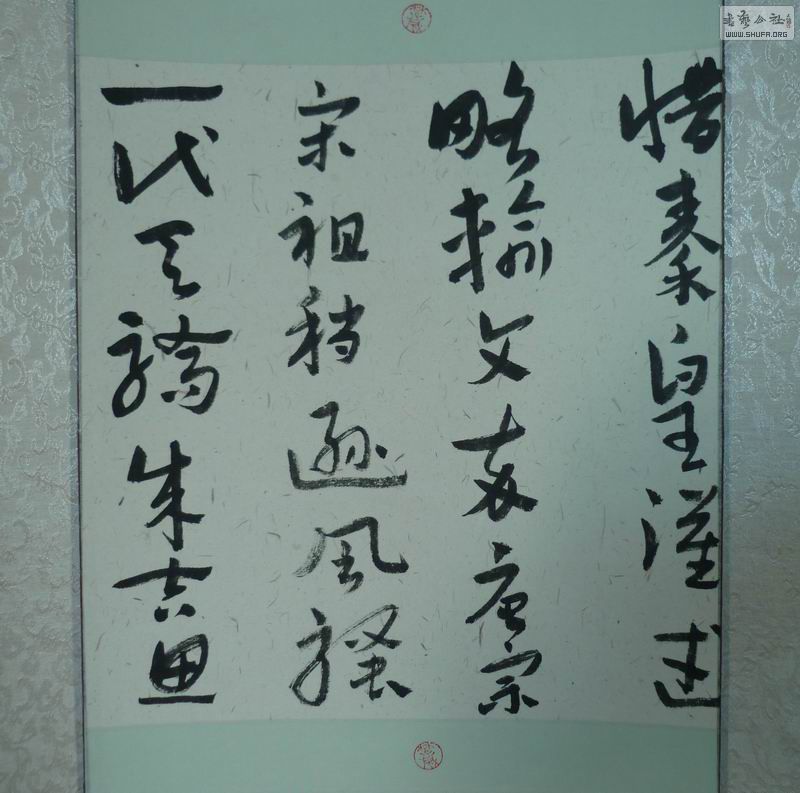 惜秦皇漢武
略輸文采唐宗
宋祖稍遜風騷
一代天驕成吉思
書藝公社
WWW.SHUFA.ORG